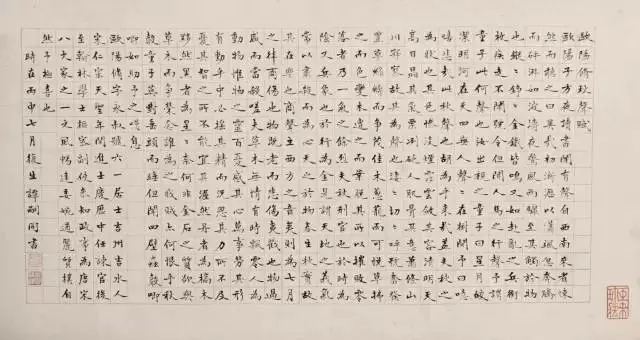 歐陽脩秋聲賦
歐陽子方夜讀書聞有聲自西南來者悚
然而聽之曰異哉初淅瀝以瀟颯忽奔騰
而砰湃如波濤夜驚風雨驟至其觸於物
也鏦鏦錚錚金鐵皆鳴又如赴敵之兵銜
枚疾走不聞號令但聞人馬之行聲予謂
童子此何聲也汝出視之童子曰星月皎
潔明河在天四無人聲聲在樹間予曰噫
嘻悲哉此秋聲也胡為乎來哉蓋夫秋之
為狀也其色慘淡煙霏雲斂其容清明天
高日晶其氣慄冽砭人肌骨其意蕭條山
川寂寥故其為聲也淒淒切切呼號奮發
豐草綠縟而爭茂佳木蔥籠而可悅草拂
之而色變木遭之而葉脫其所以摧敗零
落者乃一氣之餘烈夫秋刑官也於時為
陰又兵象也於行為金是謂天地之義氣
常以肅殺而為心天之於物春生秋實故
其在樂也商聲主西方之音夷則為七月
之律商傷也物既老而悲傷夷戮也物過
盛而當殺嗟夫草木無情有時飄零人為
動物惟物之靈百憂感其心萬事勞其形
有動乎中必搖其精而況思其力之所不及
憂其智之所不能宜其渥然丹者為槁木
黟然黑者為星星奈何非金石之質欲與
草木而爭榮念誰為之戕賊亦何恨乎秋
聲童子莫對垂頭而睡但聞四壁蟲聲唧
唧如助予之嘆息
歐陽修字永叔號六一居士吉州吉水人
宋仁宗天聖年間進士歷任諫官後
至翰林學士樞密副使參知政事為唐宋
八大家之一文風暢達委婉質樸自
然予極喜也
時在丙申七月復生譚嗣同書